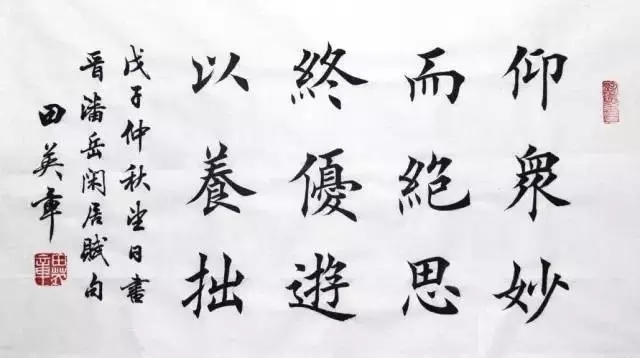 仰眾妙
而絕思
終優遊
以養拙
戊子仲秋望日書
晉潘岳閑居賦句
田英章
田英章